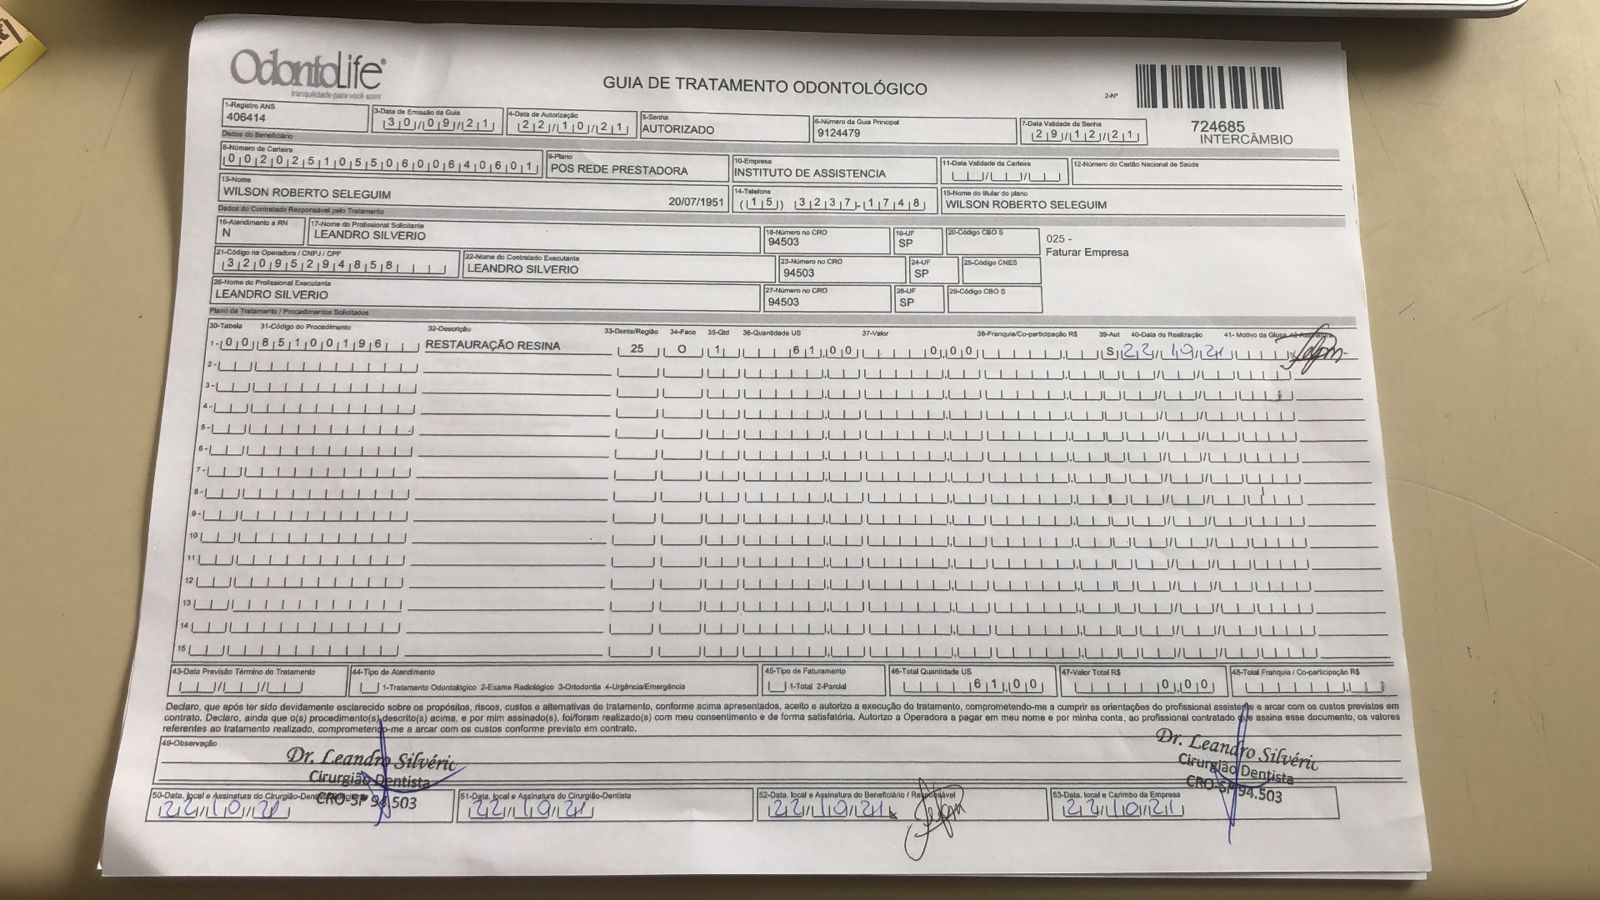 OdontoLife®
tranquilidade para você sorrir
GUIA DE TRATAMENTO ODONTOLÓGICO
2-Nº
724685
INTERCÂMBIO
1-Registro ANS
406414
3-Data de Emissão da Guia
30/09/21
4-Data de Autorização
22/10/21
5-Senha
AUTORIZADO
6-Número da Guia Principal
9124479
7-Data Validade da Senha
29/12/21
Dados do Beneficiário
8-Número de Carteira
00202510550600640601
9-Plano
POS REDE PRESTADORA
10-Empresa
INSTITUTO DE ASSISTENCIA
11-Data Validade da Carteira
12-Número do Cartão Nacional de Saúde
13-Nome
WILSON ROBERTO SELEGUIM 20/07/1951
14-Telefone
(15) 3237-1748
15-Nome do titular do plano
WILSON ROBERTO SELEGUIM
Dados do Contratado Responsável pelo Tratamento
16-Atendimento a RN
N
17-Nome do Profissional Solicitante
LEANDRO SILVERIO
18-Número no CRO
94503
19-UF
SP
20-Código CBO S
025 -
Faturar Empresa
21-Código na Operadora / CNPJ / CPF
32095294858
22-Nome do Contratado Executante
LEANDRO SILVERIO
23-Número no CRO
94503
24-UF
SP
25-Código CNES
26-Nome do Profissional Executante
LEANDRO SILVERIO
27-Número no CRO
94503
28-UF
SP
29-Código CBO S
Plano de Tratamento / Procedimentos Solicitados
30-Tabela 31-Código do Procedimento 32-Descrição 33-Dente/Região 34-Face 35-Qtd 36-Quantidade US 37-Valor 38-Franquia/Co-participação R$ 39-Aut 40-Data de Realização 41- Motivo da Glosa
1- 00 85100196 RESTAURAÇÃO RESINA 25 O 1 61,00 0,00 S 22/10/21
2-
3-
4-
5-
6-
7-
8-
9-
10
11
12
13
14
15
43-Data Previsão Término do Tratamento
44-Tipo de Atendimento
1-Tratamento Odontológico 2-Exame Radiológico 3-Ortodontia 4-Urgência/Emergência
45-Tipo de Faturamento
1-Total 2-Parcial
46-Total Quantidade US
61,00
47-Valor Total R$
0,00
48-Total Franquia / Co-participação R$
Declaro, que após ter sido devidamente esclarecido sobre os propósitos, riscos, custos e alternativas de tratamento, conforme acima apresentados, aceito e autorizo a execução do tratamento, comprometendo-me a cumprir as orientações do profissional assistente e arcar com os custos previstos em
contrato. Declaro, ainda que o(s) procedimento(s) descrito(s) acima, e por mim assinado(s), foi/foram realizado(s) com meu consentimento e de forma satisfatória. Autorizo a Operadora a pagar em meu nome e por minha conta, ao profissional contratado que assina esse documento, os valores
referentes ao tratamento realizado, comprometendo-me a arcar com os custos conforme previsto em contrato.
49-Observação
Dr. Leandro Silvério
Cirurgião Dentista
CRO-SP 94.503
Dr. Leandro Silvério
Cirurgião Dentista
CRO-SP 94.503
50-Data, local e Assinatura do Cirurgião-Dentista
22/10/21
51-Data, local e Assinatura do Cirurgião-Dentista
22/10/21
52-Data, local e Assinatura do Beneficiário / Responsável
22/10/21
53-Data, local e Carimbo da Empresa
22/10/21